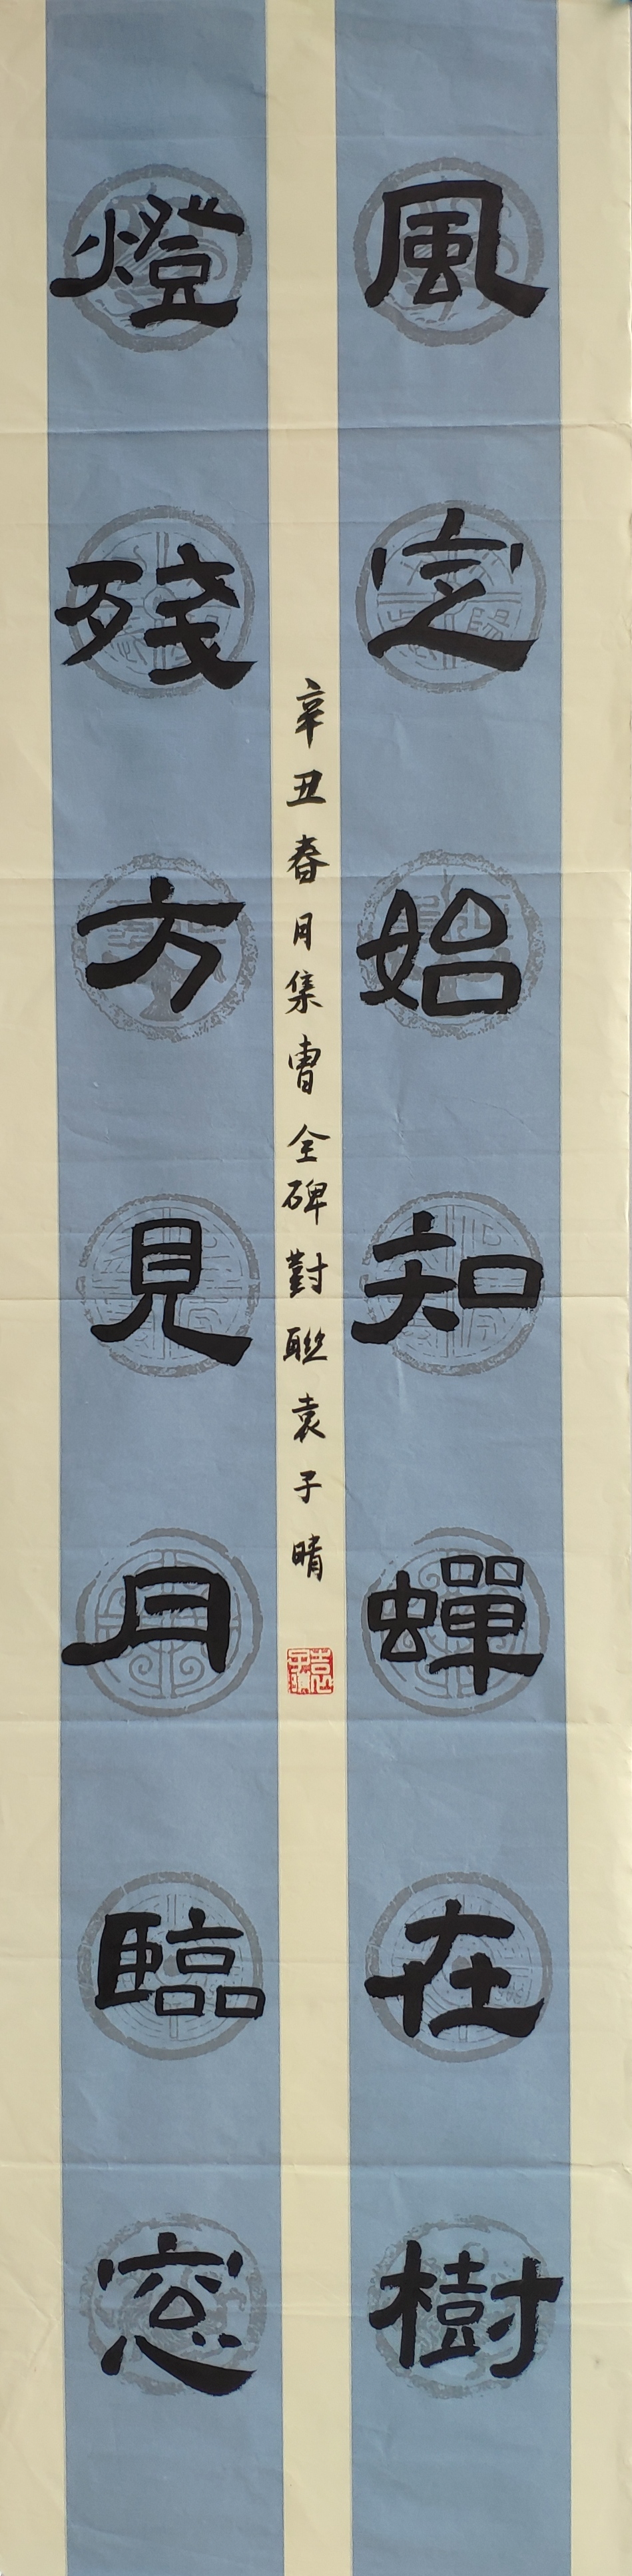 風定始知蟬在樹
燈殘方見月臨窓
辛丑春月集曹全碑對聯袁子晴